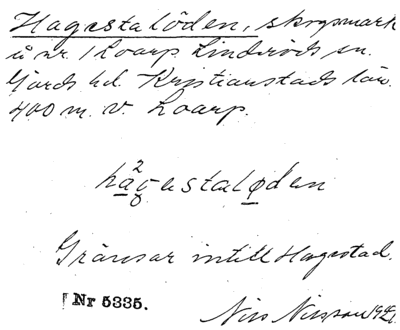 Hagestalöden, skogsmark
å nr. 1 Loarp Linderöds sn.
Gärds hd. Kristianstads län.
400 m. v. Loarp.
hagastaløden
Gränsar intill Hagestad.
Nr 5335.
Nils Nilsson